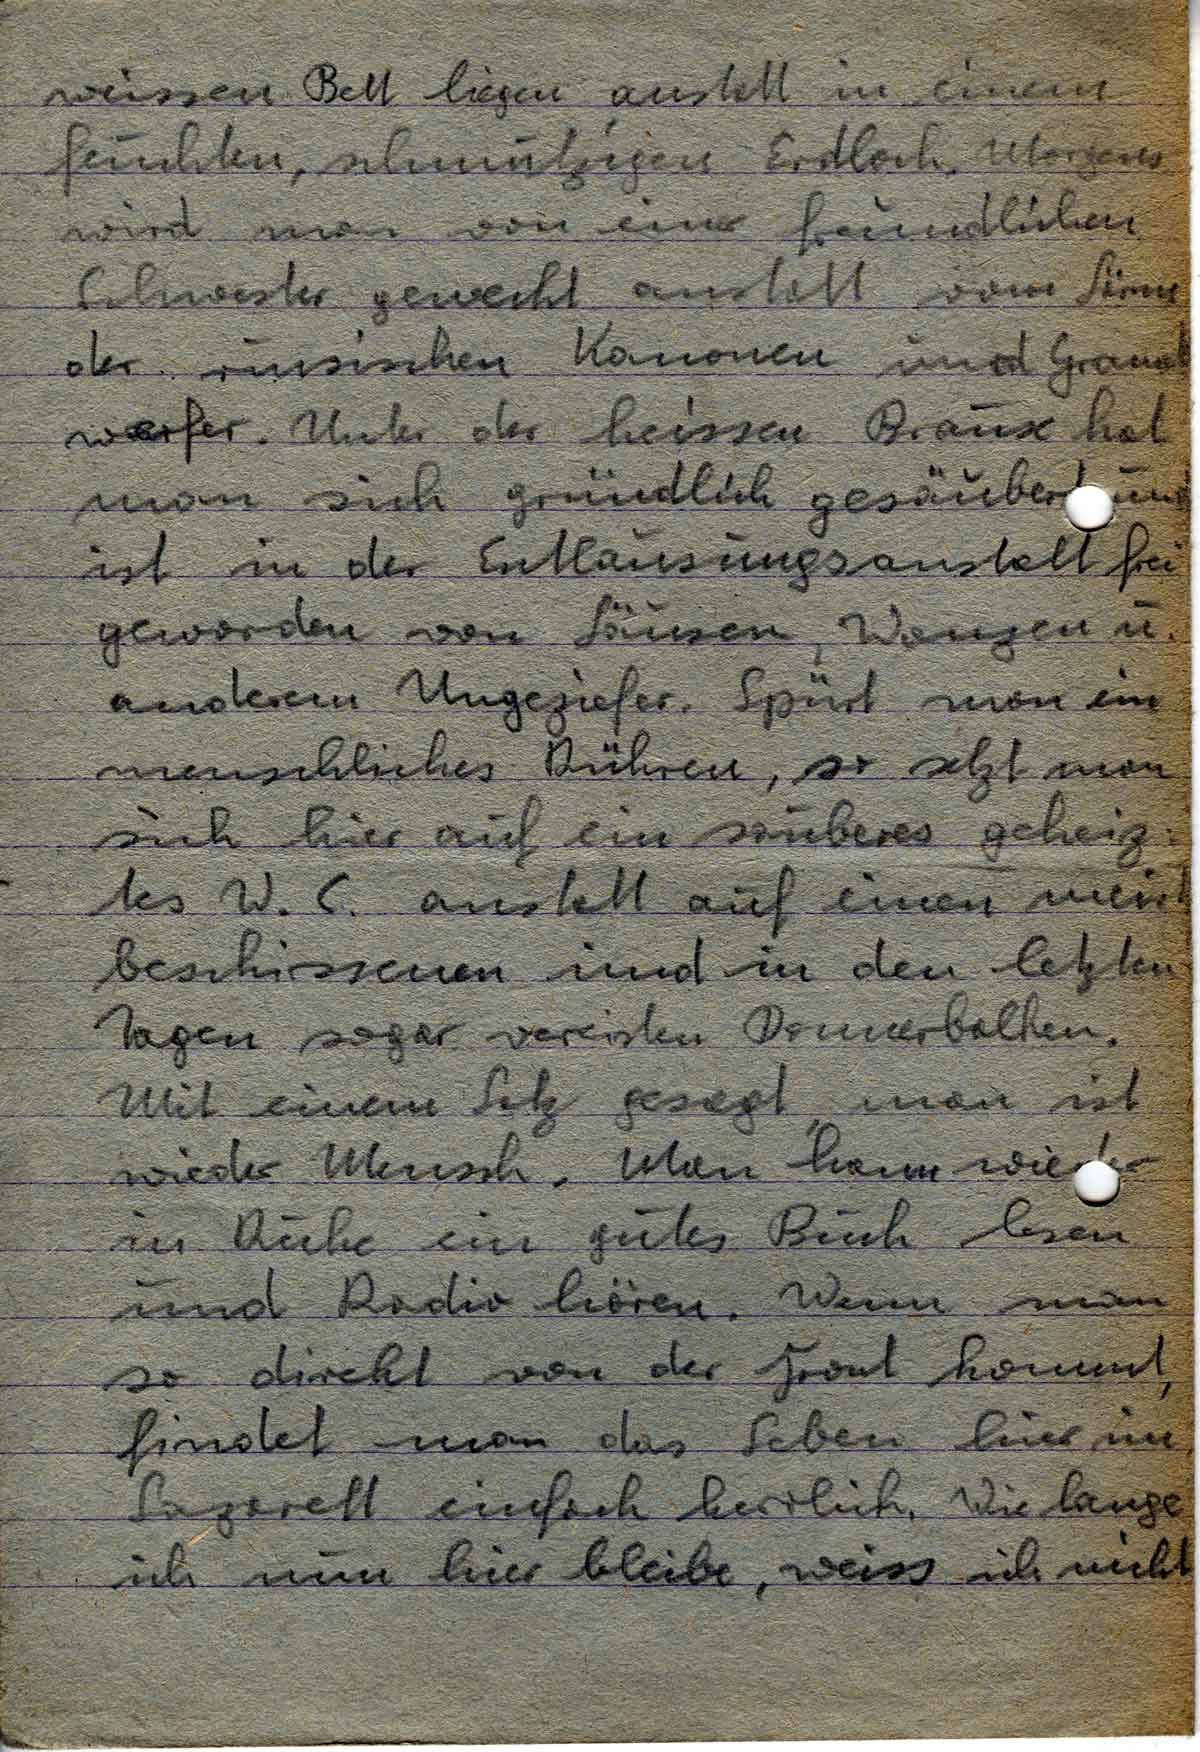 weissen Bett liegen anstatt in einem
feuchten, schmutzigen Erdloch. Morgens
wird man von einer freundlichen
Schwester geweckt anstatt vom Lärm
der russischen Kanonen und Granat
werfer. Unter der heissen Brause hat
man sich gründlich gesäubert und
ist in der Entlausungsanstalt frei
geworden von Läusen, Wanzen u.
anderem Ungeziefer. Spürt man ein
menschliches Rühren, so setzt man
sich hier auf ein sauberes geheiz-
tes W. C. anstatt auf einen meist
beschissenen und in den letzten
Tagen sogar vereisten Donnerbalken.
Mit einem Satz gesagt, man ist
wieder Mensch. Man kann wieder
in Ruhe ein gutes Buch lesen
und Radio hören. Wenn man
so direkt von der Front kommt,
findet man das Leben hier im
Lazarett einfach herrlich. Wie lange
ich nun hier bleibe, weiss ich nicht